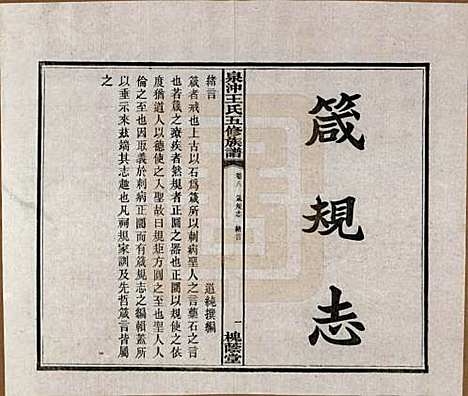 箴規志
泉沖王氏五修族譜
卷八 箴規志 緒言
一 槐蔭堂
緒言
道純撰編
箴者戒也上古以石為箴所以刺病聖人之言藥石之言
也若箴之療疾者然規者正圜之器也正圜以規使之依
度猶道人以德使之入聖故曰規矩方圓之至也聖人人
倫之至也因取義於刺病正圜而有箴規志之編賴蓋所
以垂示來茲端其志趣也凡祠規家訓及先哲箴言皆屬
之